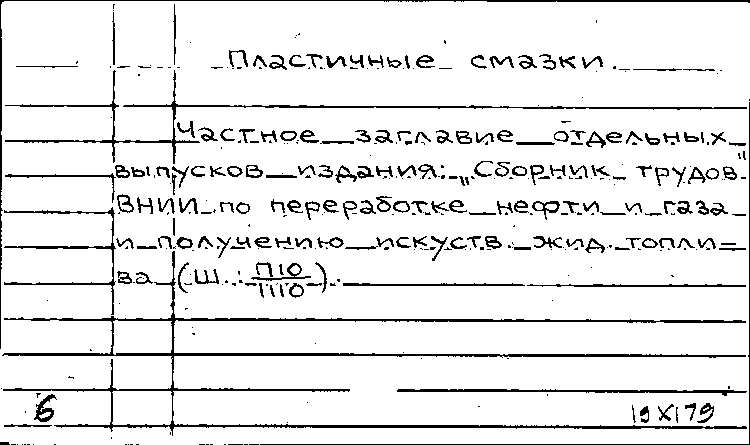 Пластичные смазки.
Частное заглавие отдельных
выпусков издания: „Сборник трудов"
ВНИИ по переработке нефти и газа
и получению искуств. жид. топли=
ва (Ш : П10/1110).
6 19 XI 79